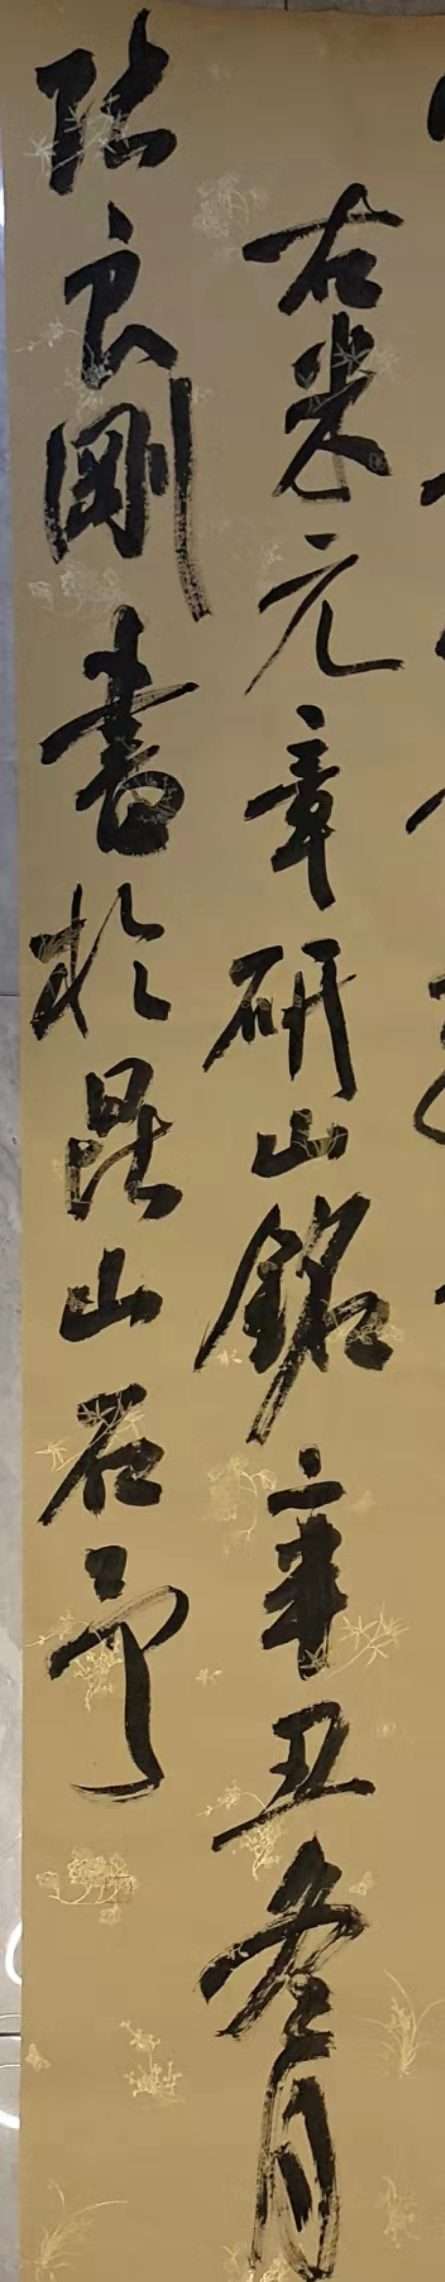 右米元章研山銘辛丑冬月
良剛書於昆山石予